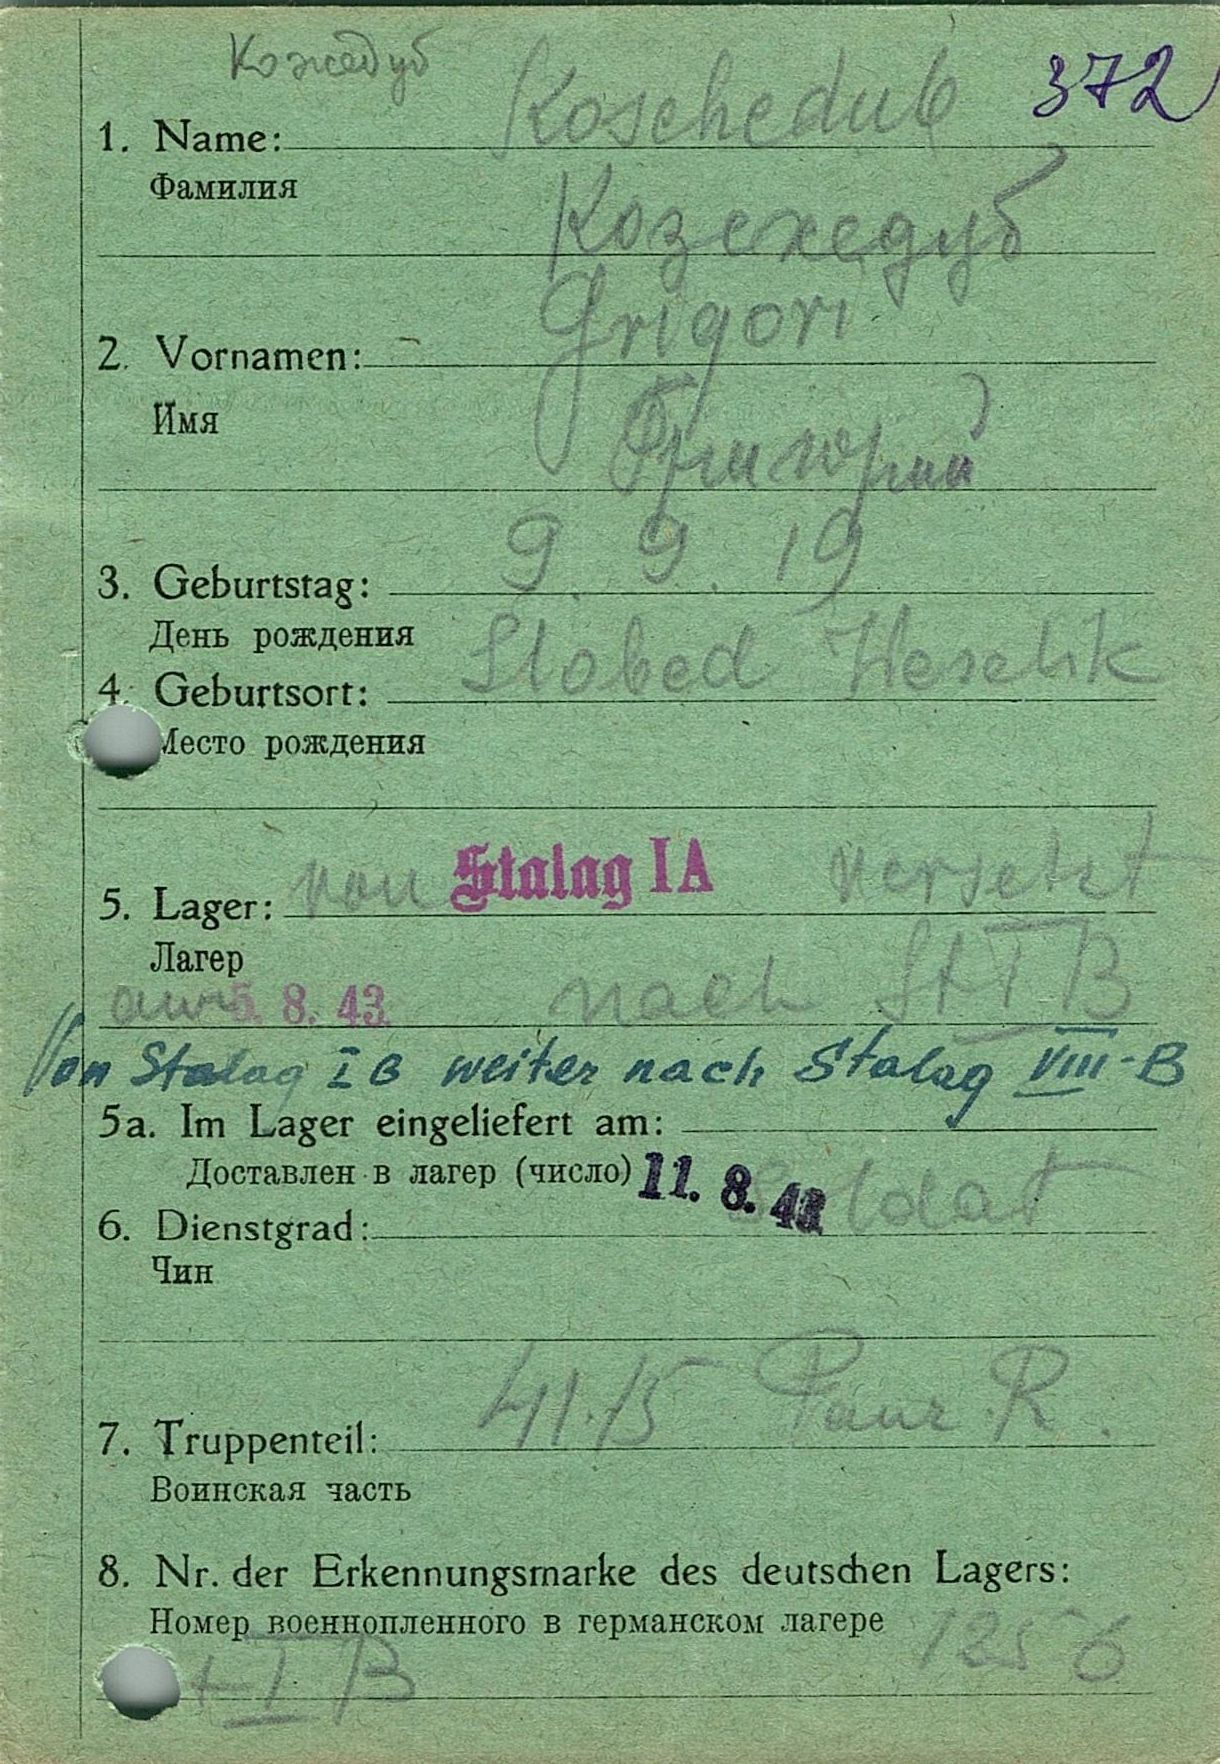 Кожедуб
372
1. Name: Koschedub
Фамилия
Козехедуб
2. Vornamen: Grigori
Имя
Григорий
3. Geburtstag: 9. 9. 19
День рождения
4. Geburtsort: Slobed
Место рождения
5. Lager: von Stalag IA versetzt
Лагер
am 5. 8. 43. nach St I B
Von Stalag I B weiter nach Stalag VIII-B
5a. Im Lager eingeliefert am:
Доставлен в лагер (число) 11. 8. 43
6. Dienstgrad: Soldat
Чин
7. Truppenteil: 41.15 Panz. R.
Воинская часть
8. Nr. der Erkennungsmarke des deutschen Lagers:
Номер военнопленного в германском лагере 1256
t I B